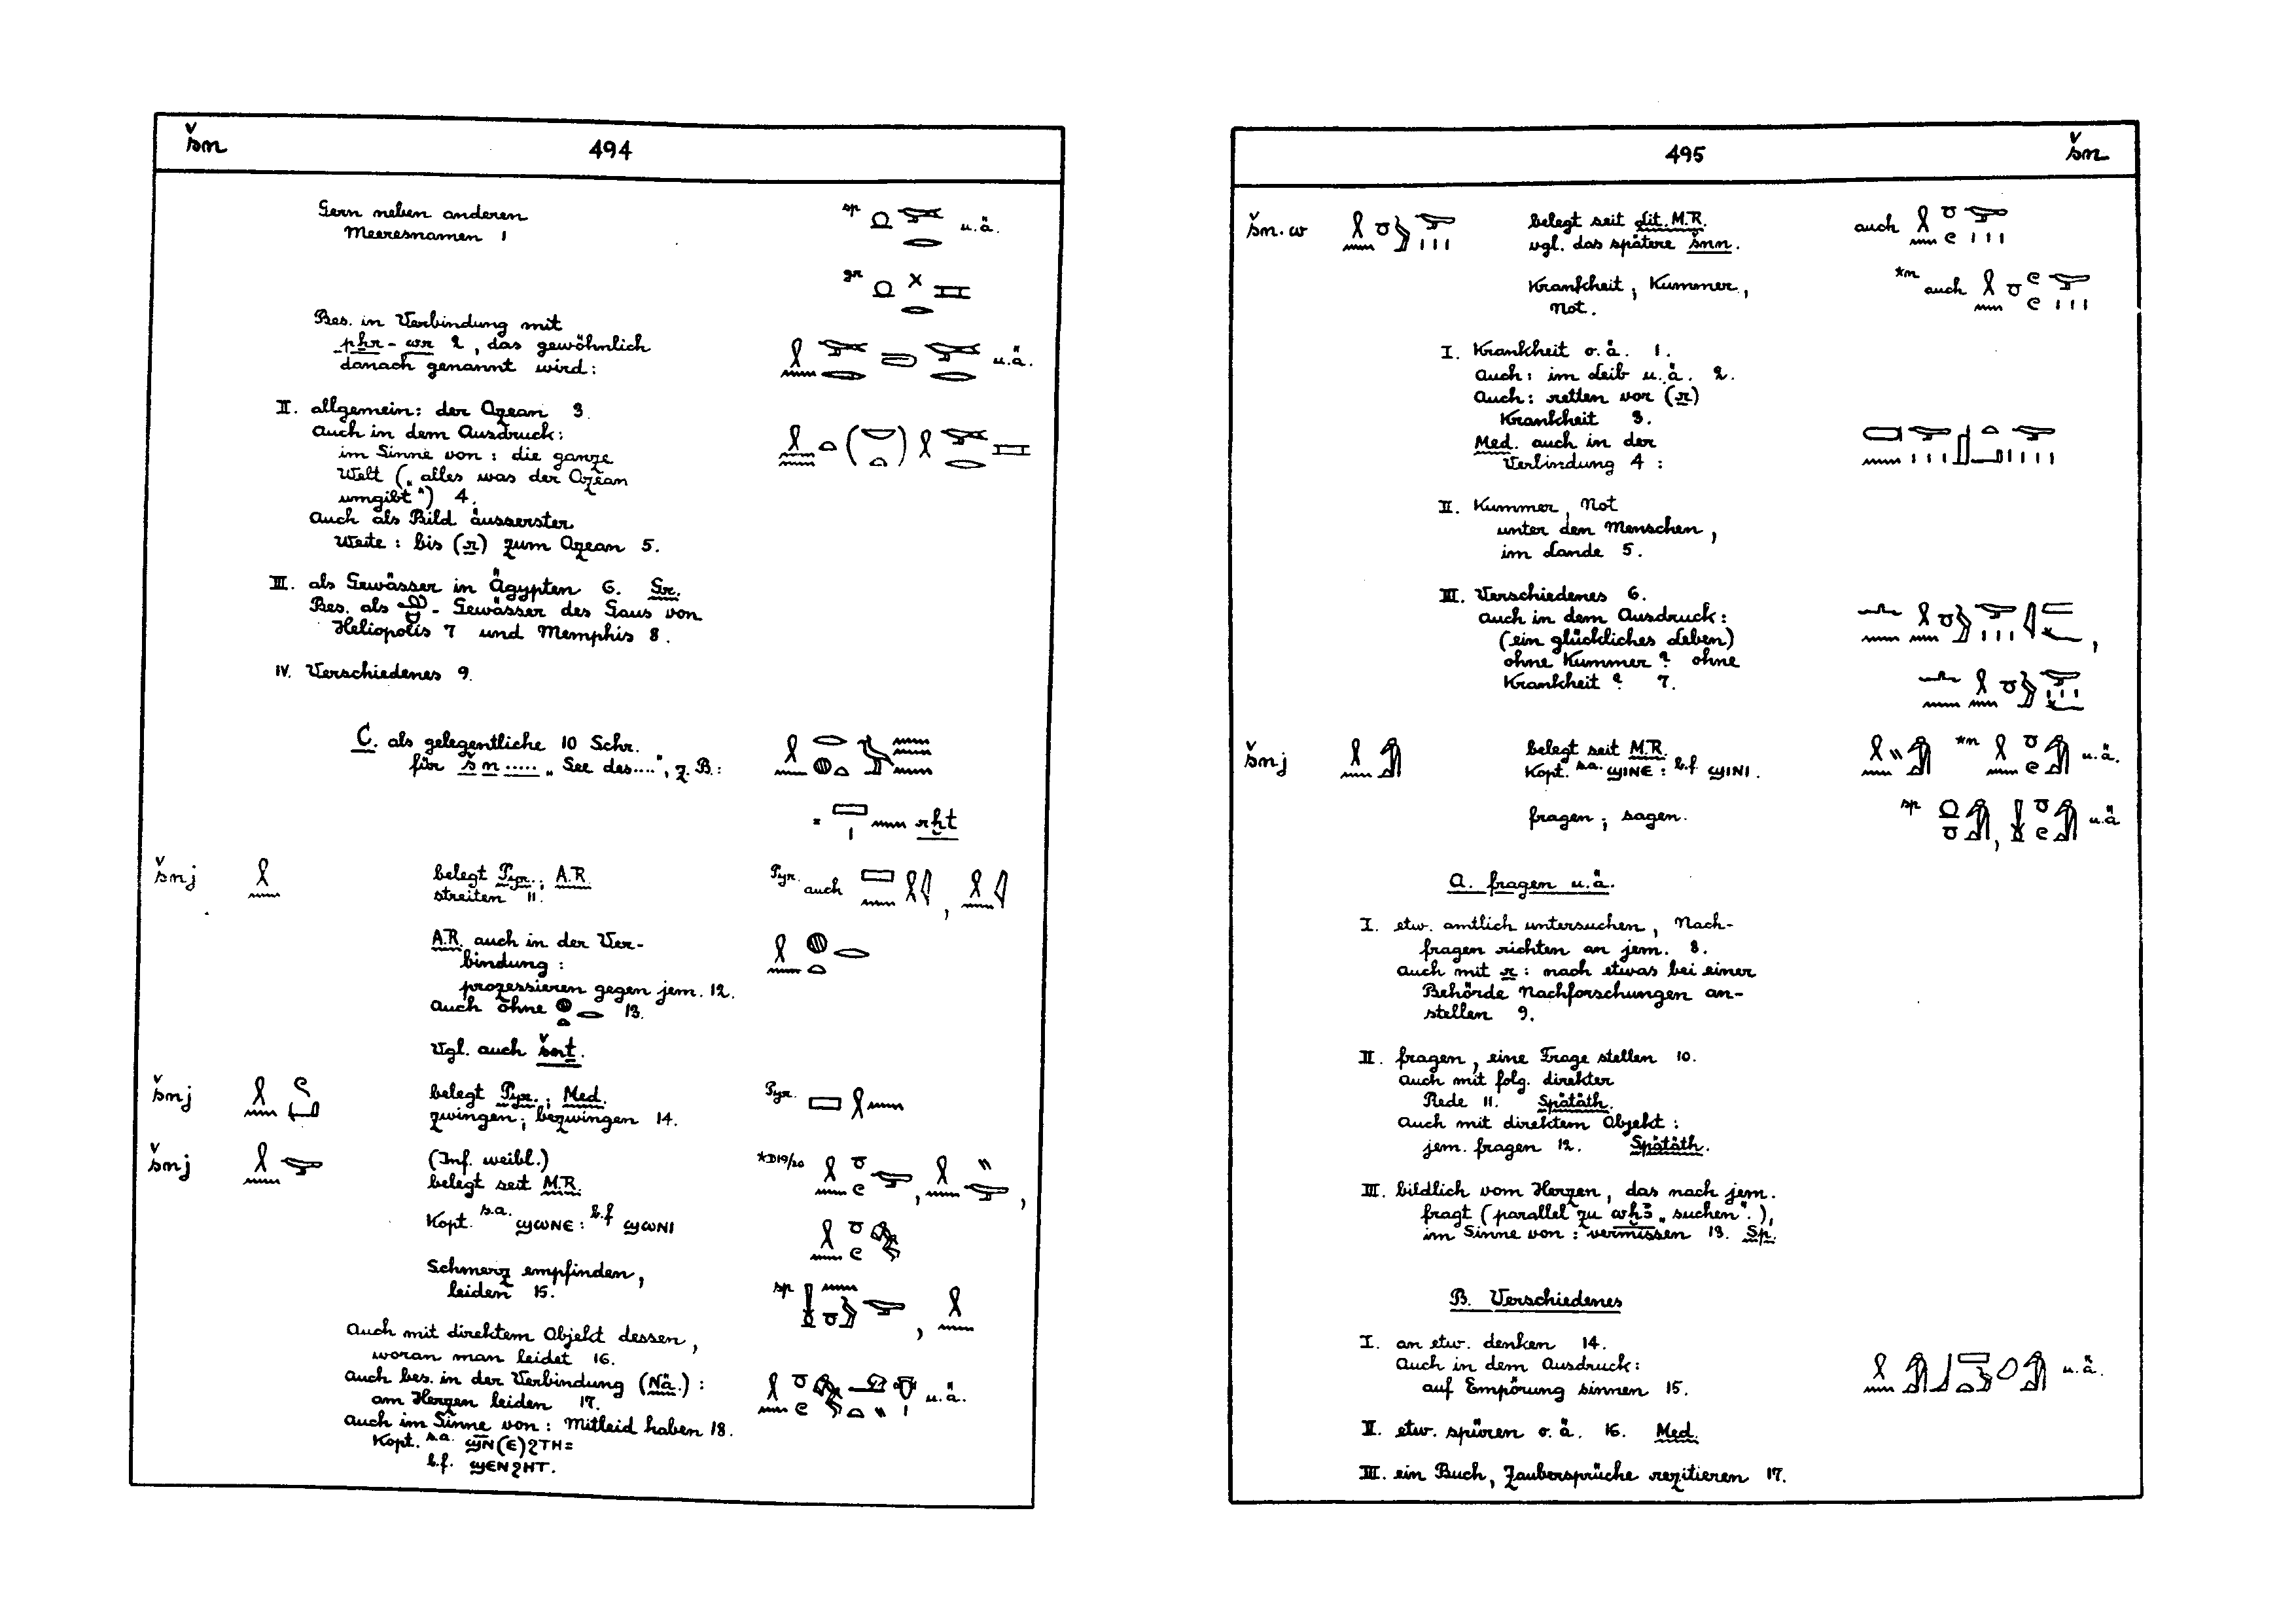 šn 494
Gern neben anderen
Meeresnamen 1
sp u.ä.
gr
Bes. in Verbindung mit
pẖr-wr 2, das gewöhnlich
danach genannt wird:
u.ä.
II. allgemein: der Ozean 3.
Auch in dem Ausdruck:
im Sinne von: die ganze
Welt („alles was der Ozean
umgibt") 4.
Auch als Bild äusserster
Weite: bis (r) zum Ozean 5.
III. als Gewässer in Ägypten 6. Gr.
Bes. als - Gewässer des Gaus von
Heliopolis 7 und Memphis 8.
IV. Verschiedenes 9.
C. als gelegentliche 10 Schr.
für šn..... „See des....", z.B.:
= rḫt
šnj
belegt Pyr.; A.R.
streiten 11.
Pyr. auch
A.R. auch in der Ver-
bindung:
prozessieren gegen jem. 12.
Auch ohne 13.
Vgl. auch šnṯ.
šnj
belegt Pyr.; Med.
zwingen; bezwingen 14.
Pyr.
šnj
(Inf. weibl.)
belegt seit M.R.
*D19/20
Kopt. s.a. ϣⲱⲛⲉ: b.f ϣⲱⲛⲓ
Schmerz empfinden,
leiden 15.
sp
Auch mit direktem Objekt dessen,
woran man leidet 16.
Auch bes. in der Verbindung (Nä.):
am Herzen leiden 17.
u.ä.
Auch im Sinne von: Mitleid haben 18.
Kopt. s.a. ϣⲛ̄(ⲉ)ϩⲧⲏ=
b.f. ϣⲉⲛϩⲏⲧ.
495 šn
šn.w
belegt seit Lit. M.R.
vgl. das spätere šnn.
auch
Krankheit; Kummer,
Not.
*n auch
I. Krankheit o.ä. 1.
Auch: im Leib u.ä. 2.
Auch: retten vor (r)
Krankheit 3.
Med. auch in der
Verbindung 4:
II. Kummer, Not
unter den Menschen,
im Lande 5.
III. Verschiedenes 6.
Auch in dem Ausdruck:
(ein glückliches Leben)
ohne Kummer? ohne
Krankheit? 7.
šnj
belegt seit M.R.
Kopt. s.a. ϣⲓⲛⲉ: b.f ϣⲓⲛⲓ.
*n u.ä.
fragen; sagen.
sp u.ä
A. fragen u.ä.
I. etw. amtlich untersuchen, Nach-
fragen richten an jem. 8.
Auch mit r: nach etwas bei einer
Behörde Nachforschungen an-
stellen 9.
II. fragen, eine Frage stellen 10.
Auch mit folg. direkter
Rede 11. Spätäth.
Auch mit direktem Objekt:
jem. fragen 12. Spätäth.
III. bildlich vom Herzen, das nach jem.
fragt (parallel zu wḫꜣ „suchen".),
im Sinne von: vermissen 13. Sp.
B. Verschiedenes
I. an etw. denken 14.
Auch in dem Ausdruck:
auf Empörung sinnen 15.
u.ä.
II. etw. spüren o.ä. 16. Med.
III. ein Buch, Zaubersprüche rezitieren 17.